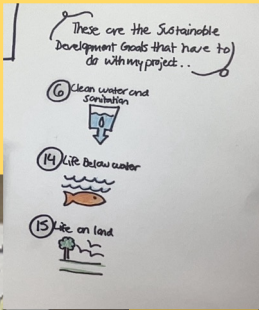 These are the Sustainable
Development Goals that have to
do with my project..
6 Clean water and
sanitation
14 Life Below water
15 Life on land